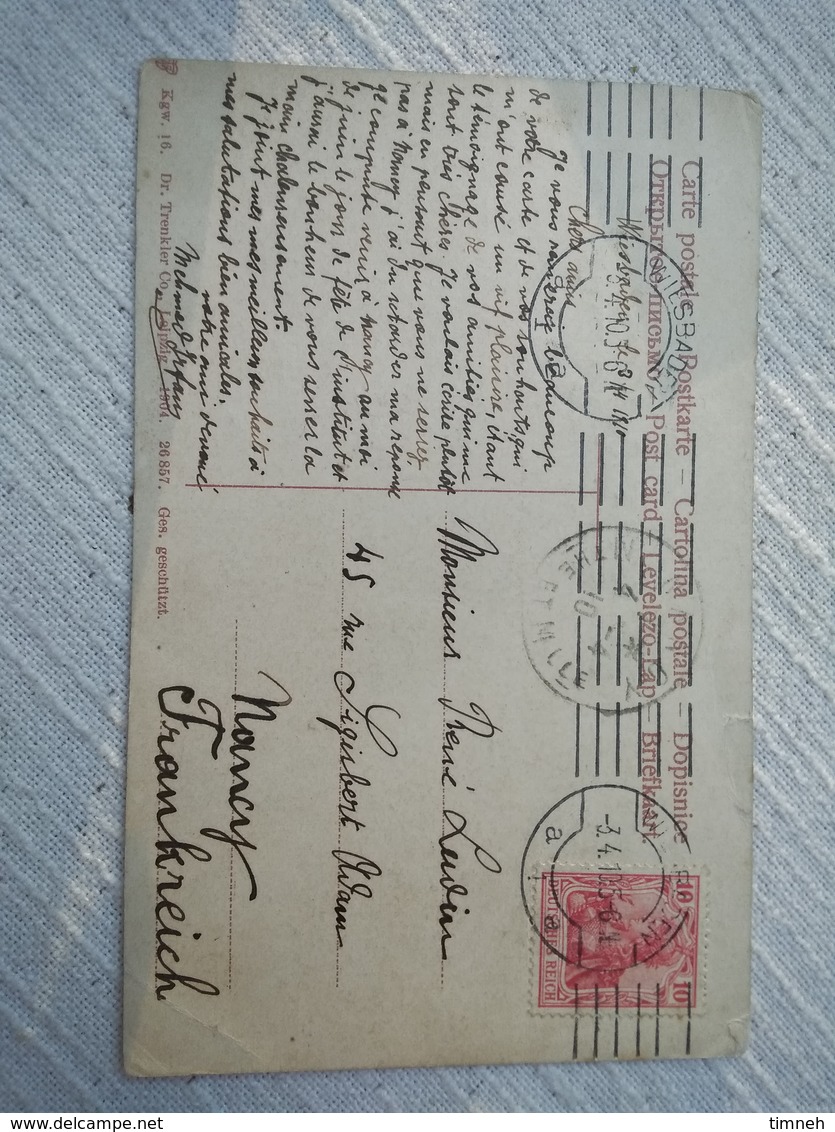 Carte postale – Postkarte – Cartolina postale – Dopisnice
Открытое письмо – Post card – Levelezo-Lap – Briefkaart
Wiesbaden
Cher ami
Je vous remercie beaucoup
de votre carte et de vos souhaits, qui
m'ont causé un vif plaisir, étant
le témoignage de vos amitiés qui me
sont très chères. Je voulais écrire plutôt
mais en pensant que vous ne serez
pas à Nancy j'ai du retarder ma réponse
Je compte venir à Nancy au moi
de juin le jour de fête de l'institut et
j'aurai le bonheur de vous serrer la
main chaleureusement.
Je joint mes meilleurs souhaits à
mes salutations bien amicales.
votre ami dévoué
Mehmed
Monsieur René
45 rue Sigisbert Adam
Nancy
Frankreich
Kgw. 16. Dr. Trenkler Co., Leipzig. 1904. 26857. Ges. geschützt.
WIESBADEN
3.4.10.5-6 N
a
3.4.10.5-6 N
a
10 10
DEUTSCHES REICH
timneh